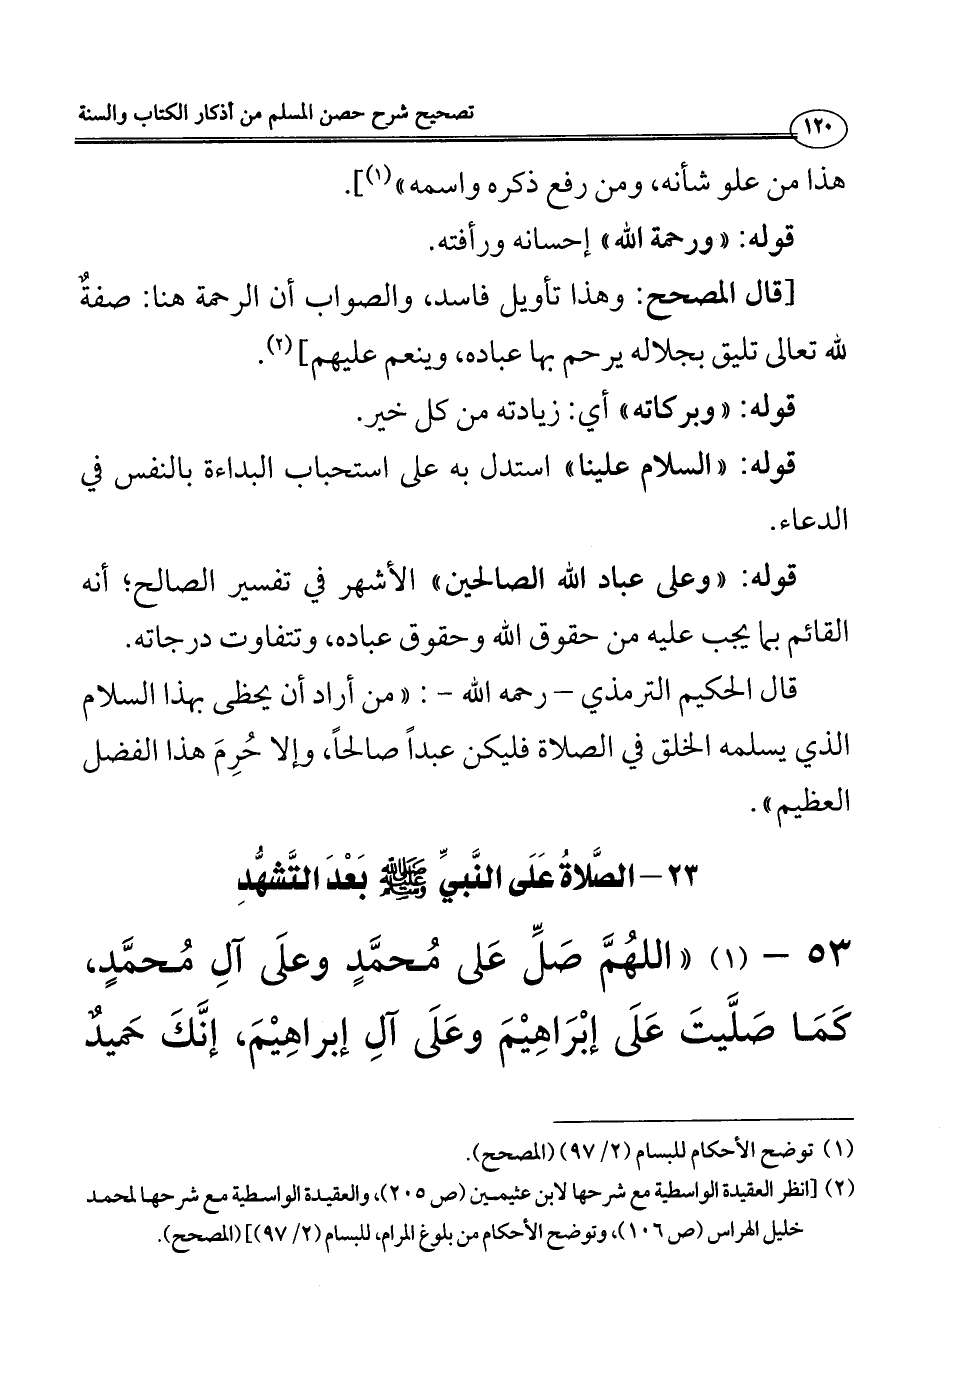 ١٢٠ تصحيح شرح حصن المسلم من أذكار الكتاب والسنة
هذا من علو شأنه، ومن رفع ذكره واسمه»(١)].
قوله: «ورحمة الله» إحسانه ورأفته.
[قال المصحح: وهذا تأويل فاسد، والصواب أن الرحمة هنا: صفةٌ
لله تعالى تليق بجلاله يرحم بها عباده، وينعم عليهم](٢).
قوله: «وبركاته» أي: زيادته من كل خير.
قوله: «السلام علينا» استدل به على استحباب البداءة بالنفس في
الدعاء.
قوله: «وعلى عباد الله الصالحين» الأشهر في تفسير الصالح؛ أنه
القائم بما يجب عليه من حقوق الله وحقوق عباده، وتتفاوت درجاته.
قال الحكيم الترمذي – رحمه الله – : «من أراد أن يحظى بهذا السلام
الذي يسلمه الخلق في الصلاة فليكن عبداً صالحاً، وإلا حُرِمَ هذا الفضل
العظيم».
٢٣ – الصَّلاةُ عَلَى النَّبيِّ ﷺ بَعْدَ التَّشهُّدِ
٥٣ – (١) «اللهُمَّ صَلِّ عَلى مُحمَّدٍ وعلَى آلِ مُحمَّدٍ،
كَمَا صَلَّيتَ عَلَى إبْرَاهِيْمَ وعَلَى آلِ إبراهِيْمَ، إنَّكَ حَميدٌ
(١) توضح الأحكام للبسام (٢/ ٩٧) (المصحح).
(٢) [انظر العقيدة الواسطية مع شرحها لابن عثيمين (ص ٢٠٥)، والعقيدة الواسطية مع شرحها لمحمد
خليل الهراس (ص ١٠٦)، وتوضح الأحكام من بلوغ المرام، للبسام (٢/ ٩٧)] (المصحح).